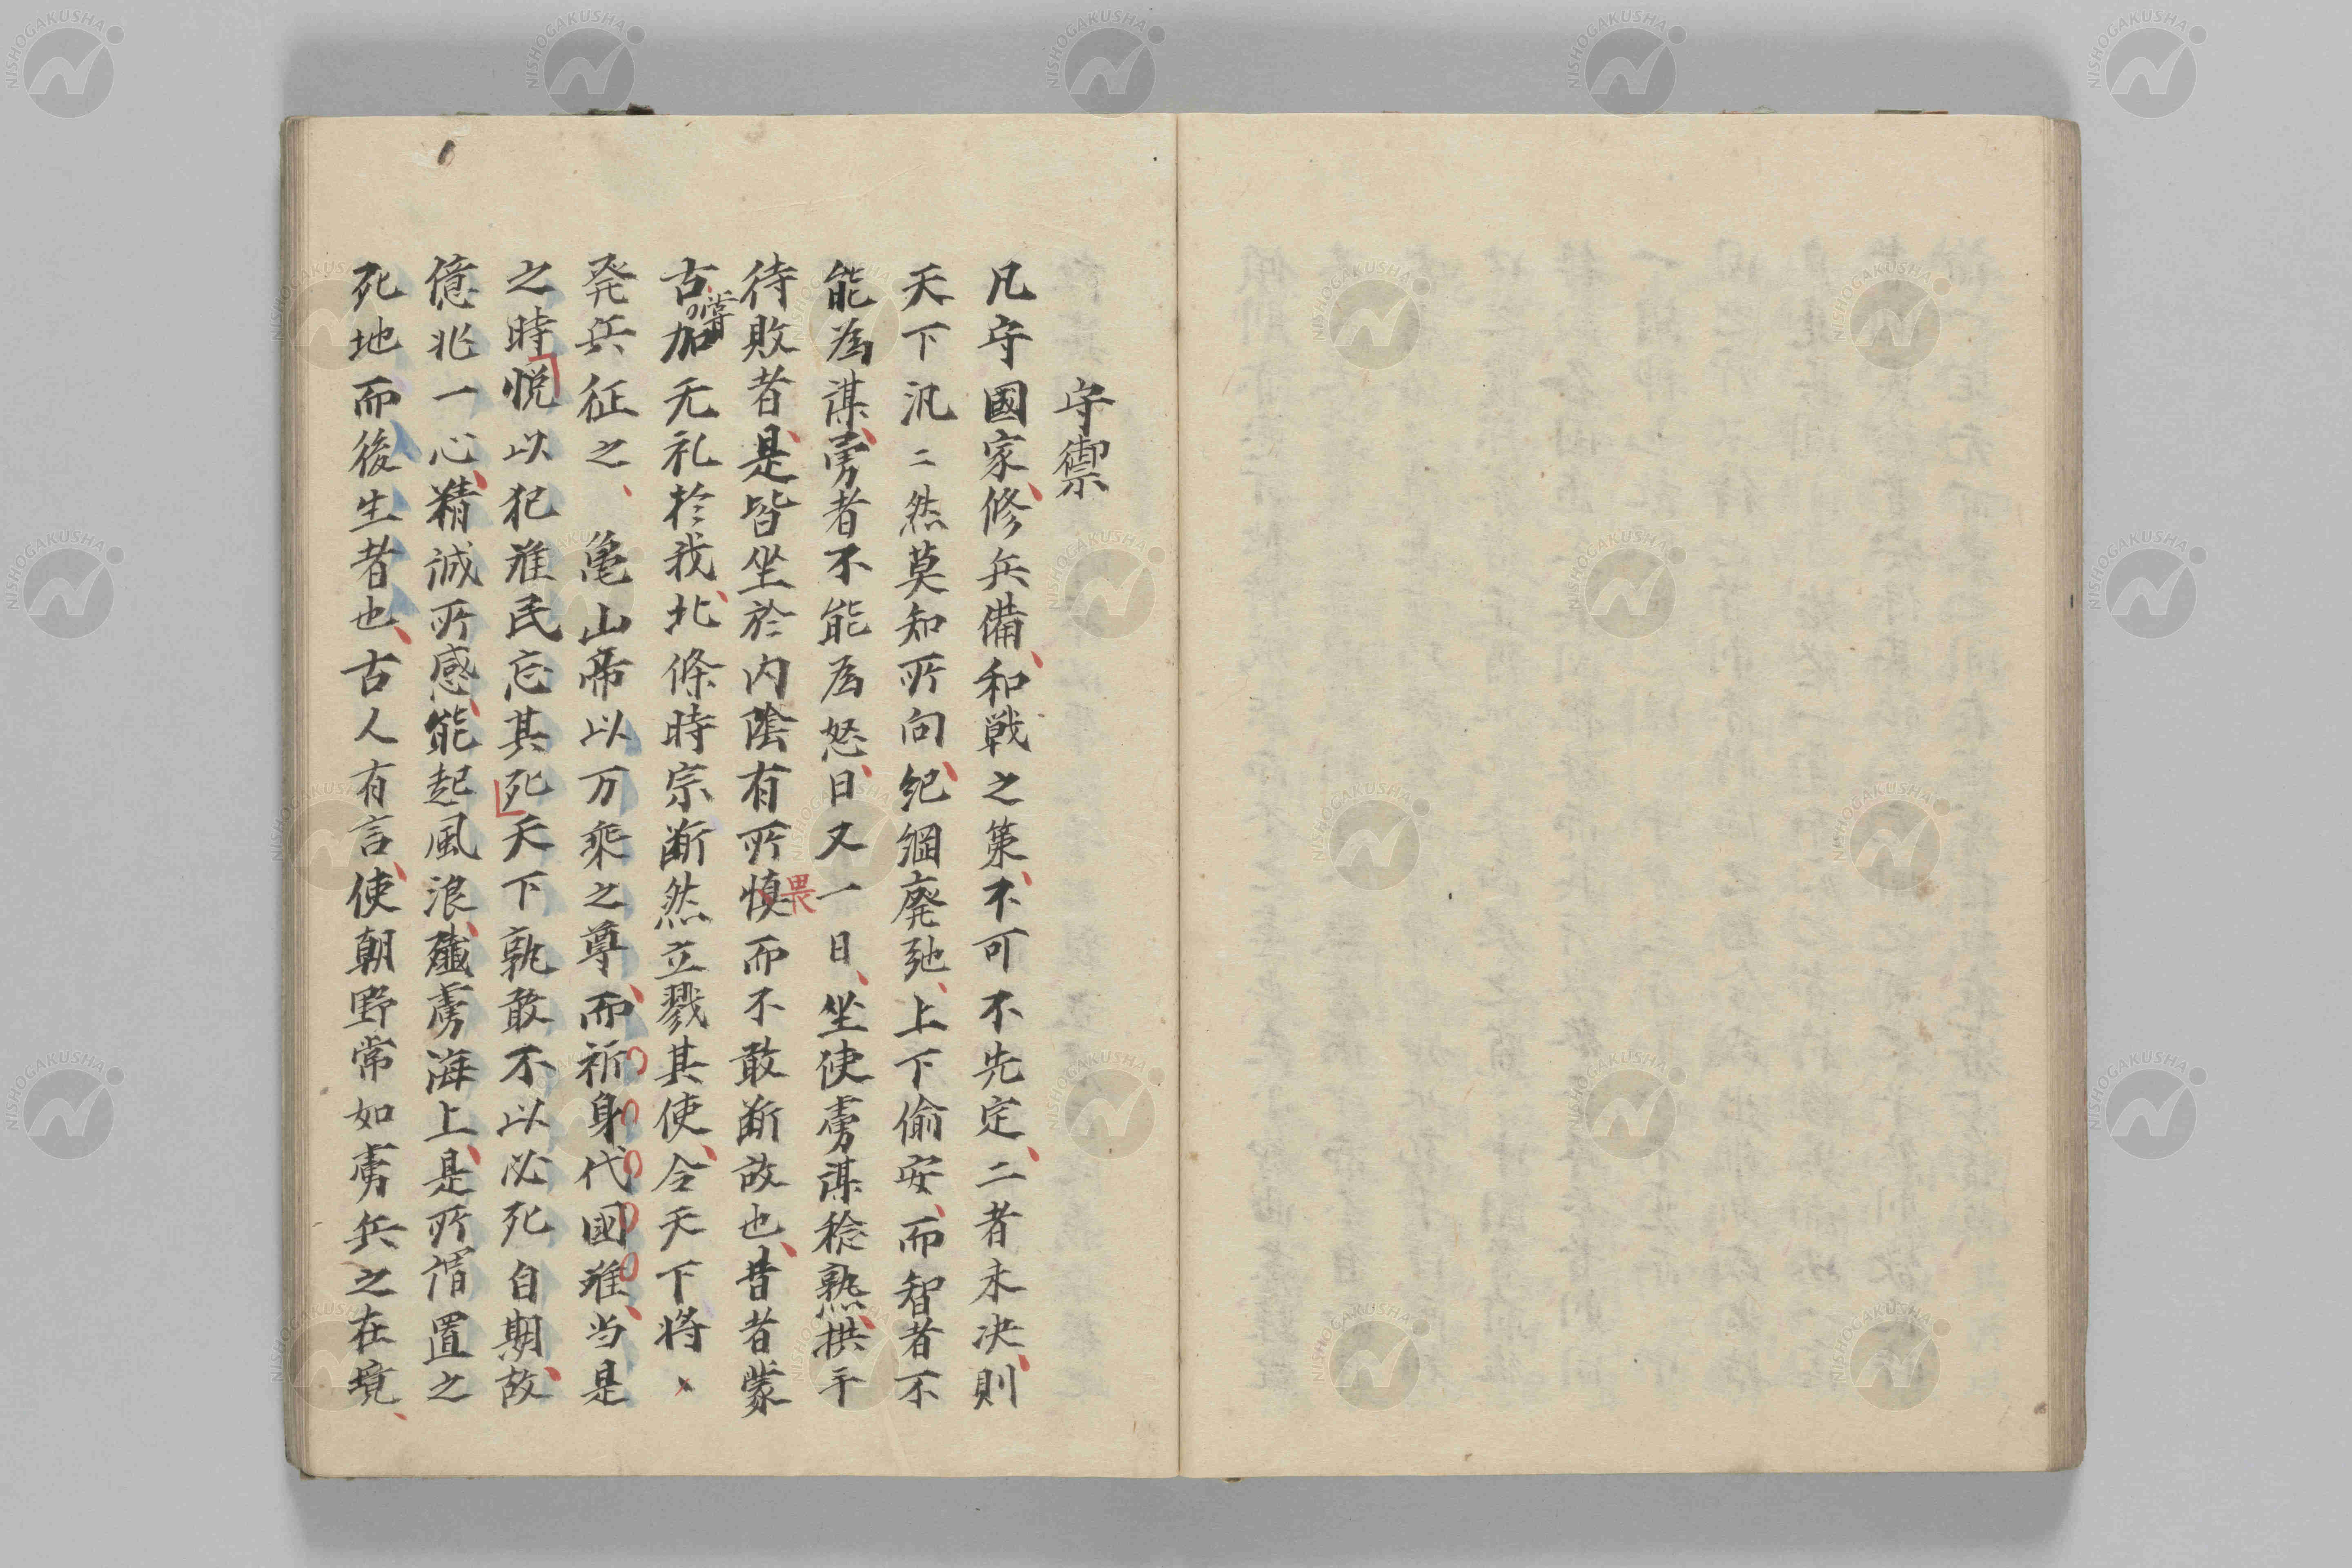 守禦
凡守國家、修兵備、和戦之策、不可不先定、二者未决、則
天下汎〻然莫知所向、紀綱廃弛、上下偷安、而智者不
能為謀、勇者不能為怒、日又一日、坐使虜謀稔熟、拱手
待敗者、是皆坐於内陰有所慎畏而不敢断故也、昔者蒙
古嘗加无礼於我、北條時宗断然立戮其使、令天下将
発兵征之、亀山帝以万乘之尊、而祈身代國难、当是
之時悦以犯难民忘其死天下孰敢不以必死自期、故
億兆一心、精誠所感、能起風浪、殲虜海上、是所謂置之
死地而後生者也、古人有言、使朝野常如虜兵之在境、
NISHOGAKUSHA